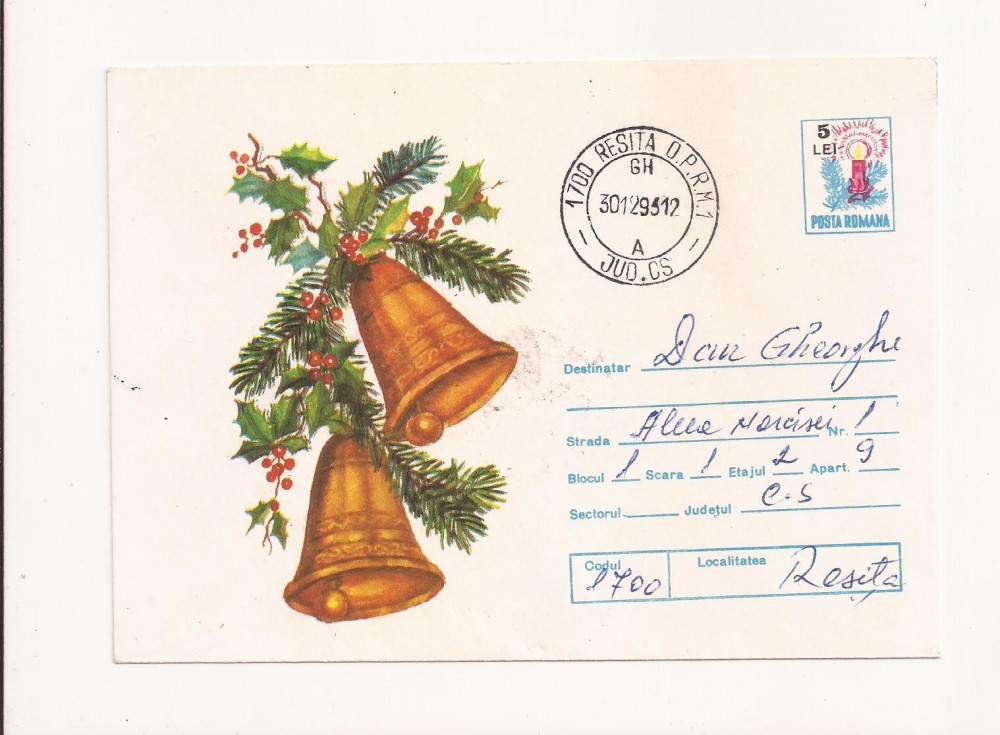 5
LEI
POSTA ROMANA
1700 RESITA O.P.R.M 1
GH
30129312
A
JUD.CS
Destinatar Dan Gheorghe
Strada Aleea Narcisei Nr. 1
Blocul 1 Scara 1 Etajul 2 Apart. 9
Sectorul Județul C.S
Codul 1700 Localitatea Resița